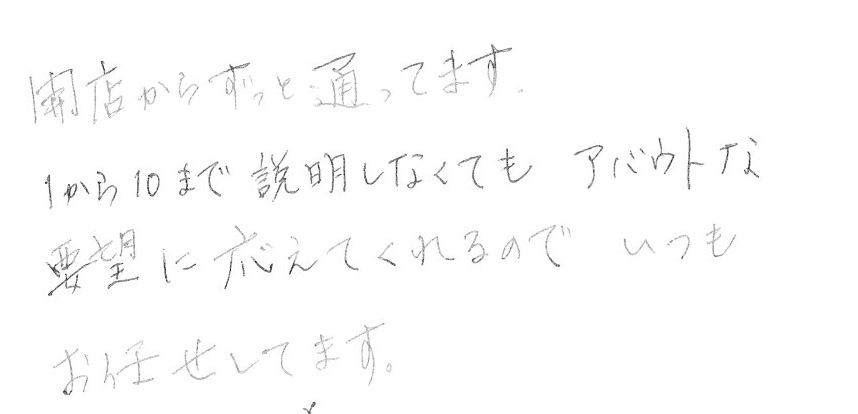 開店からずっと通ってます.
1から10まで説明しなくても アバウトな
要望に応えてくれるので いつも
お任せしてます。